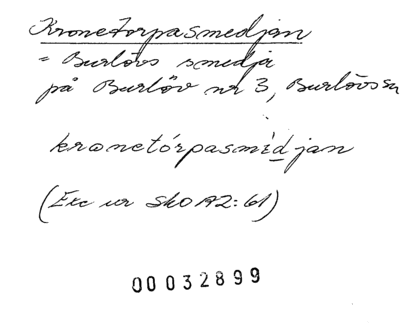 Kronetorpasmedjan
= Burlövs smedja
på Burlöv nr 3, Burlövs sn
kronetórpasmìdjan
(Exc ur SkO A2:61)
00032899